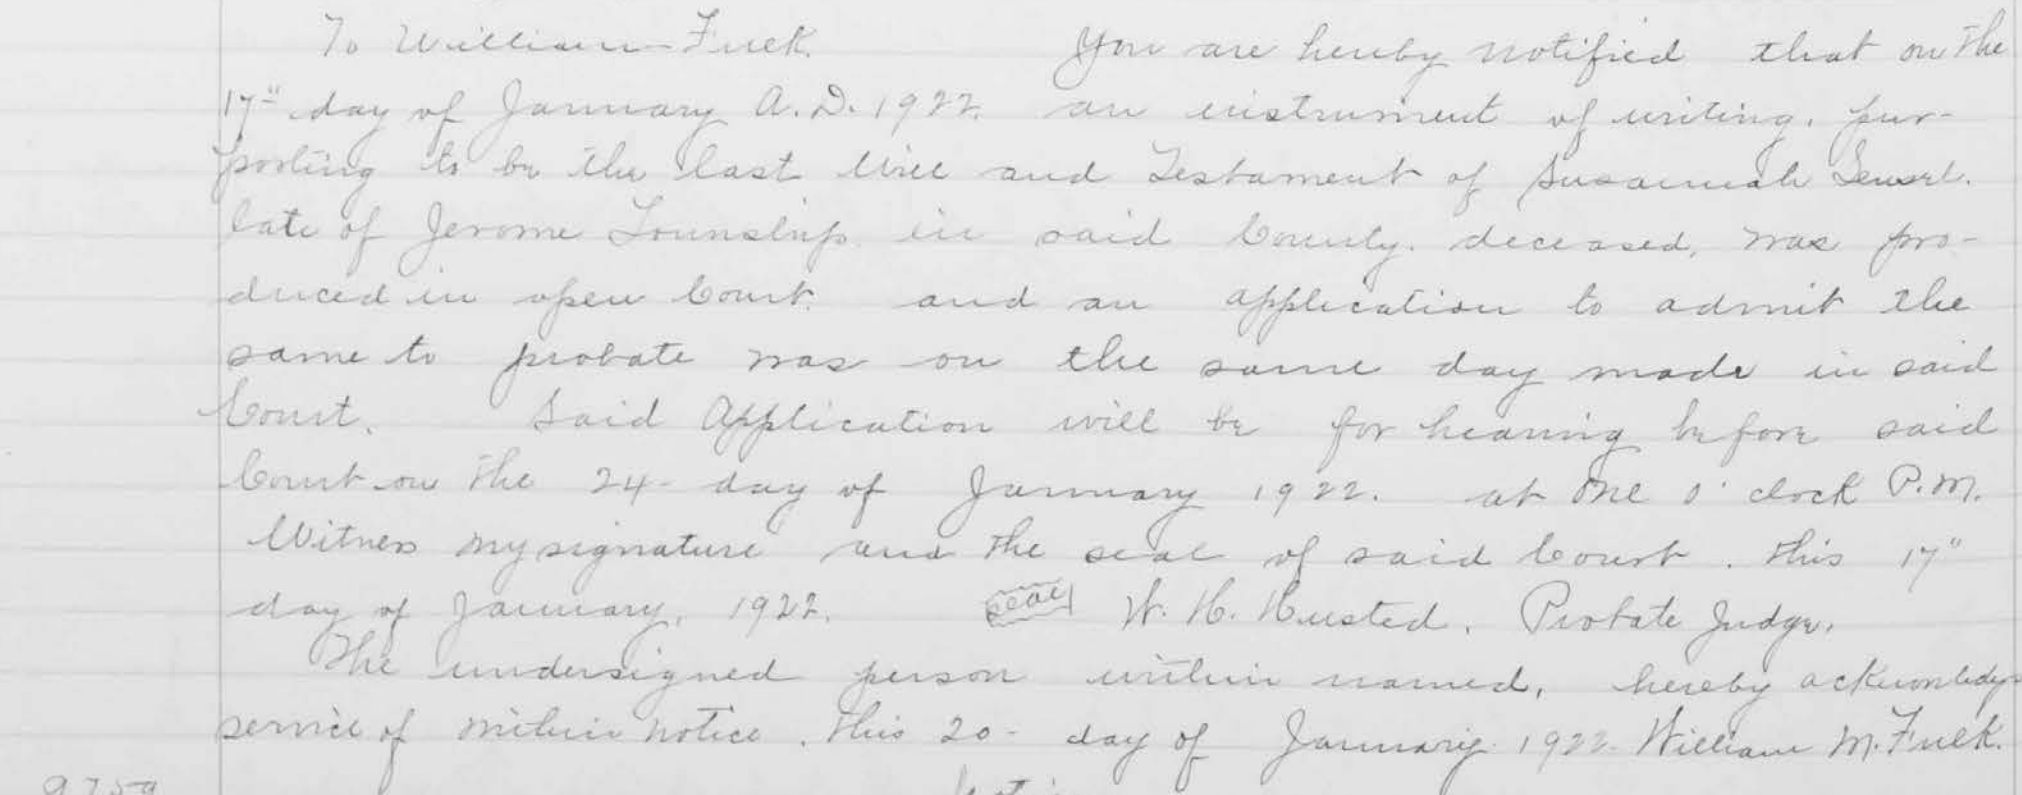 To William Fulk. You are hereby notified that on the
17" day of January A.D. 1922. an instrument of writing, pur-
porting to be the last Will and Testament of Susannah
late of Jerome Township in said County. deceased, was pro-
duced in open Court. and an application to admit the
same to probate was on the same day made in said
Court. Said Application will be for hearing before said
Court on the 24- day of January 1922. at one o'clock P.M.
Witness my signature and the seal of said Court. this 17"
day of January, 1922. seal W. H. Husted, Probate Judge.
The undersigned person within named, hereby acknowledge
service of within notice. this 20- day of January 1922. William M. Fulk.
9759